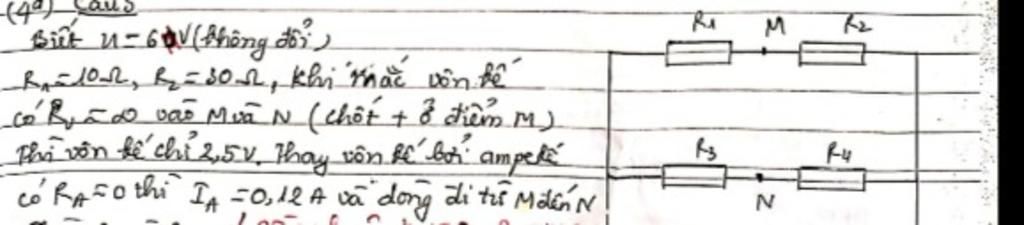 (4đ) Câu 5
Biết U = 6V (không đổi)
R₁ = 10Ω, R₂ = 30Ω, khi mắc vôn kế
có Rᵥ = ∞ vào M và N (chốt + ở điểm M)
Thì vôn kế chỉ 2,5V. Thay vôn kế bởi ampe kế
có R_A = 0 thì I_A = 0,12 A và dòng đi từ M đến N
R₁ M R₂
R₃ R₄
N